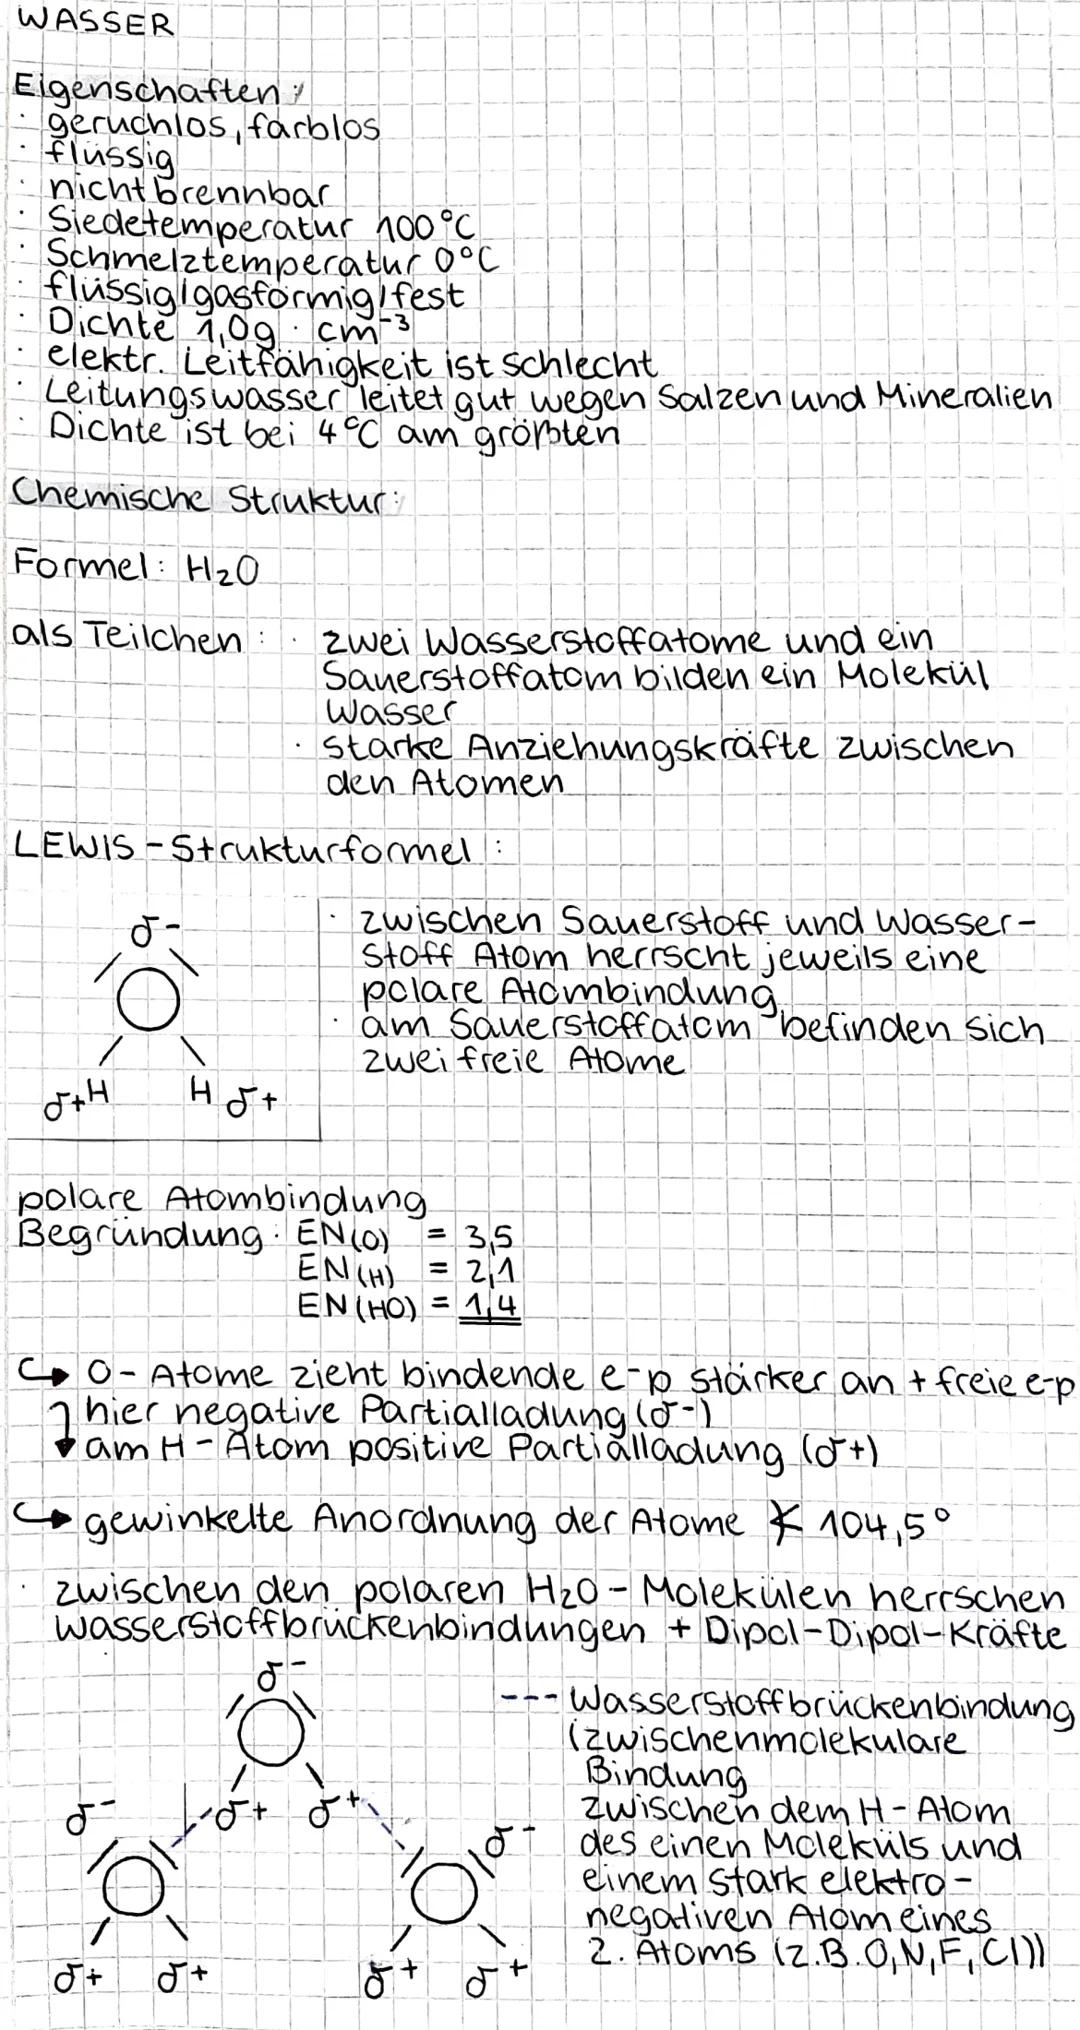 WASSER
Eigenschaften:
· geruchlos, farblos
· flüssig
· nicht brennbar
· Siedetemperatur 100°C
· Schmelztemperatur 0°C
· flüssig/gasförmig/fest
· Dichte 1,0g · cm⁻³
· elektr. Leitfähigkeit ist schlecht
· Leitungswasser leitet gut wegen Salzen und Mineralien
· Dichte ist bei 4°C am größten
Chemische Struktur:
Formel: H₂O
als Teilchen: · zwei Wasserstoffatome und ein
Sauerstoffatom bilden ein Molekül
Wasser
· starke Anziehungskräfte zwischen
den Atomen
LEWIS-Strukturformel:
δ-
O
δ+H H δ+
· zwischen Sauerstoff und Wasser-
stoff Atom herrscht jeweils eine
polare Atombindung
· am Sauerstoffatom befinden sich
zwei freie Atome
polare Atombindung
Begründung: EN(O) = 3,5
EN(H) = 2,1
EN(HO) = 1,4
↪ O-Atome zieht bindende e⁻p stärker an + freie e-p
hier negative Partialladung (δ-)
am H-Atom positive Partialladung (δ+)
↪ gewinkelte Anordnung der Atome ∢ 104,5°
· zwischen den polaren H₂O-Molekülen herrschen
Wasserstoffbrückenbindungen + Dipol-Dipol-Kräfte
δ-
O
δ+ δ+
δ-
O
δ+ δ+
δ-
O
δ+ δ+
--- Wasserstoffbrückenbindung
(zwischenmolekulare
Bindung
zwischen dem H-Atom
des einen Moleküls und
einem stark elektro-
negativen Atom eines
2. Atoms (z.B. O,N,F,Cl))